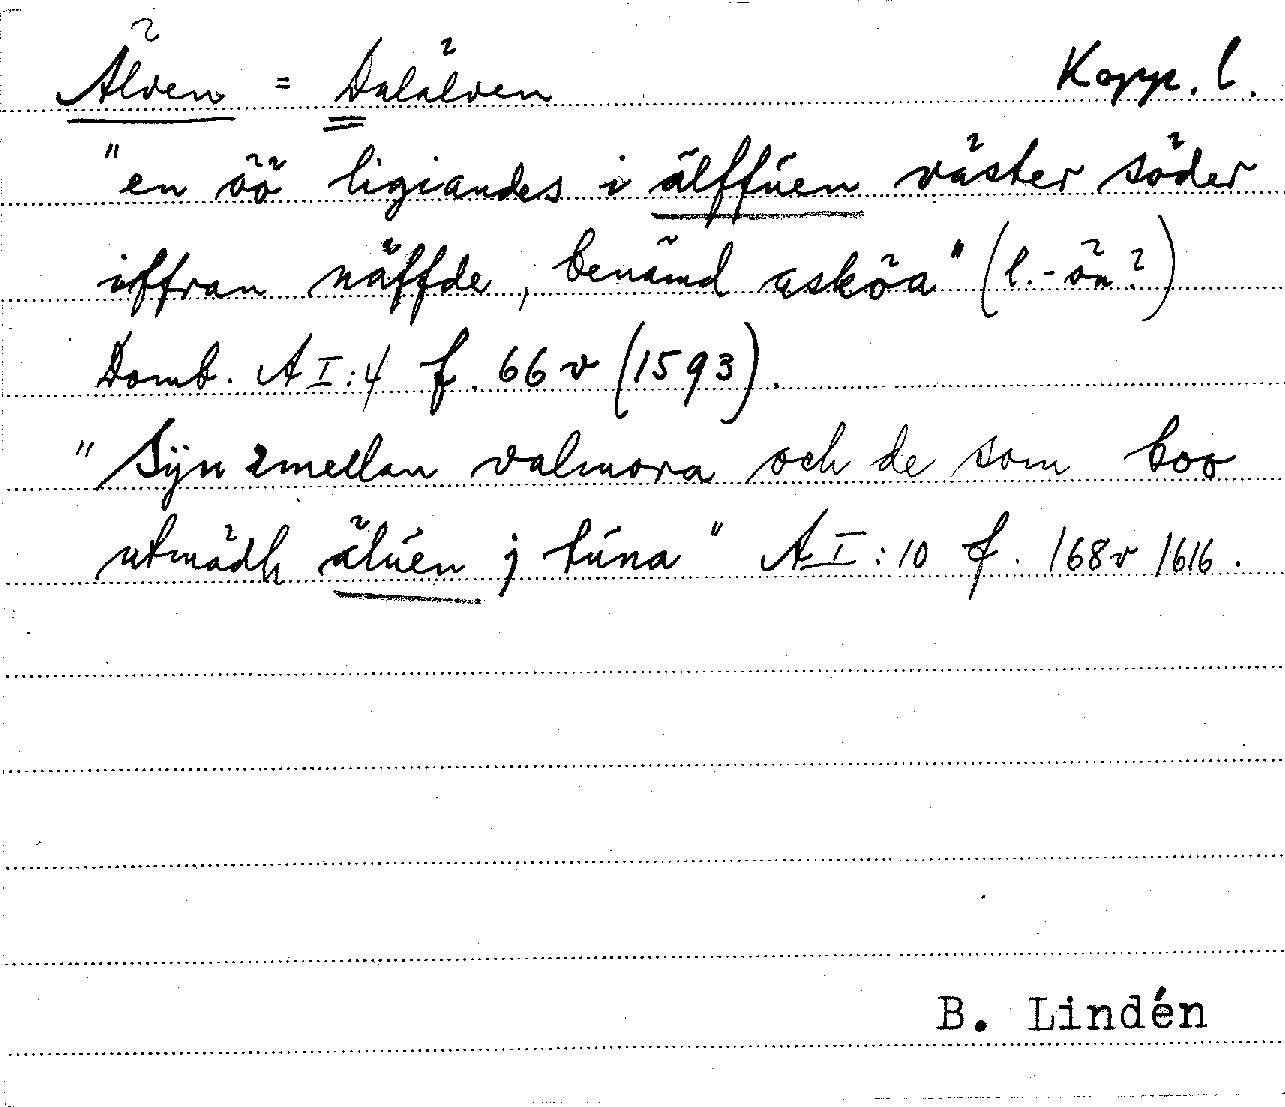 Älven = Dalälven Kopp. l.
"en öö ligiandes i älffúen väster söder
iffran näffde, benämd asköa" (l. -ön?)
Domb. A I:4 f. 66 v (1593).
"Sÿn emellan valmora och de som boo
utmädh älúen j túna" A I:10 f. 168v 1616.
B. Lindén